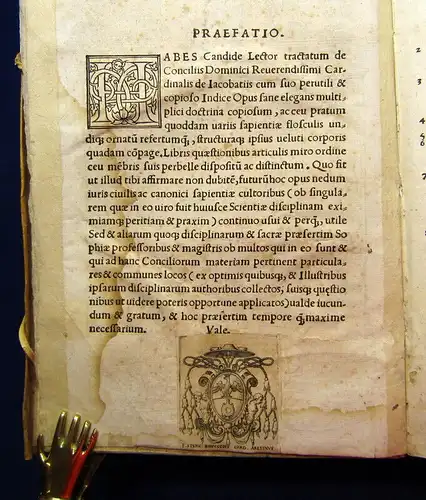 PRAEFATIO.
HABES Candide Lector tractatum de
Conciliis Dominici Reuerendissimi Car-
dinalis de Iacobatiis cum suo perutili &
copioso Indice Opus sane elegans multi
plici doctrina copiosum, ac ceu pratum
quoddam uariis sapientiæ flosculis un-
diq; ornatū refertumq́;, structuraq; ipsius ueluti corporis
quadam cōpage. Libris quæstionibus articulis miro ordine
ceu mēbris suis perbelle dispositū ac distinctum. Quo fit
ut illud tibi affirmare non dubitē, futurū hoc opus nedum
iuris ciuilis ac canonici sapientiæ cultoribus (ob singula,
rem quæ in eo uiro fuit huiusce Scientiæ disciplinam ex
imiamq; peritiam & praxim) continuo usui & perq̄, utile
Sed & aliarum quoq; disciplinarum & sacræ præsertim So
phiæ professoribus & magistris ob multos qui in eo sunt &
qui ad hanc Conciliorum materiam pertinent particula,
res & communes locos (ex optimis quibusq;, & Illustribus
ipsarum disciplinarum authoribus collectos, suisq; quęstio
nibus ut uidere poteris opportune applicatos) ualde iucun
dum & gratum, & hoc præsertim tempore q̄ maxime
necessarium. Vale.